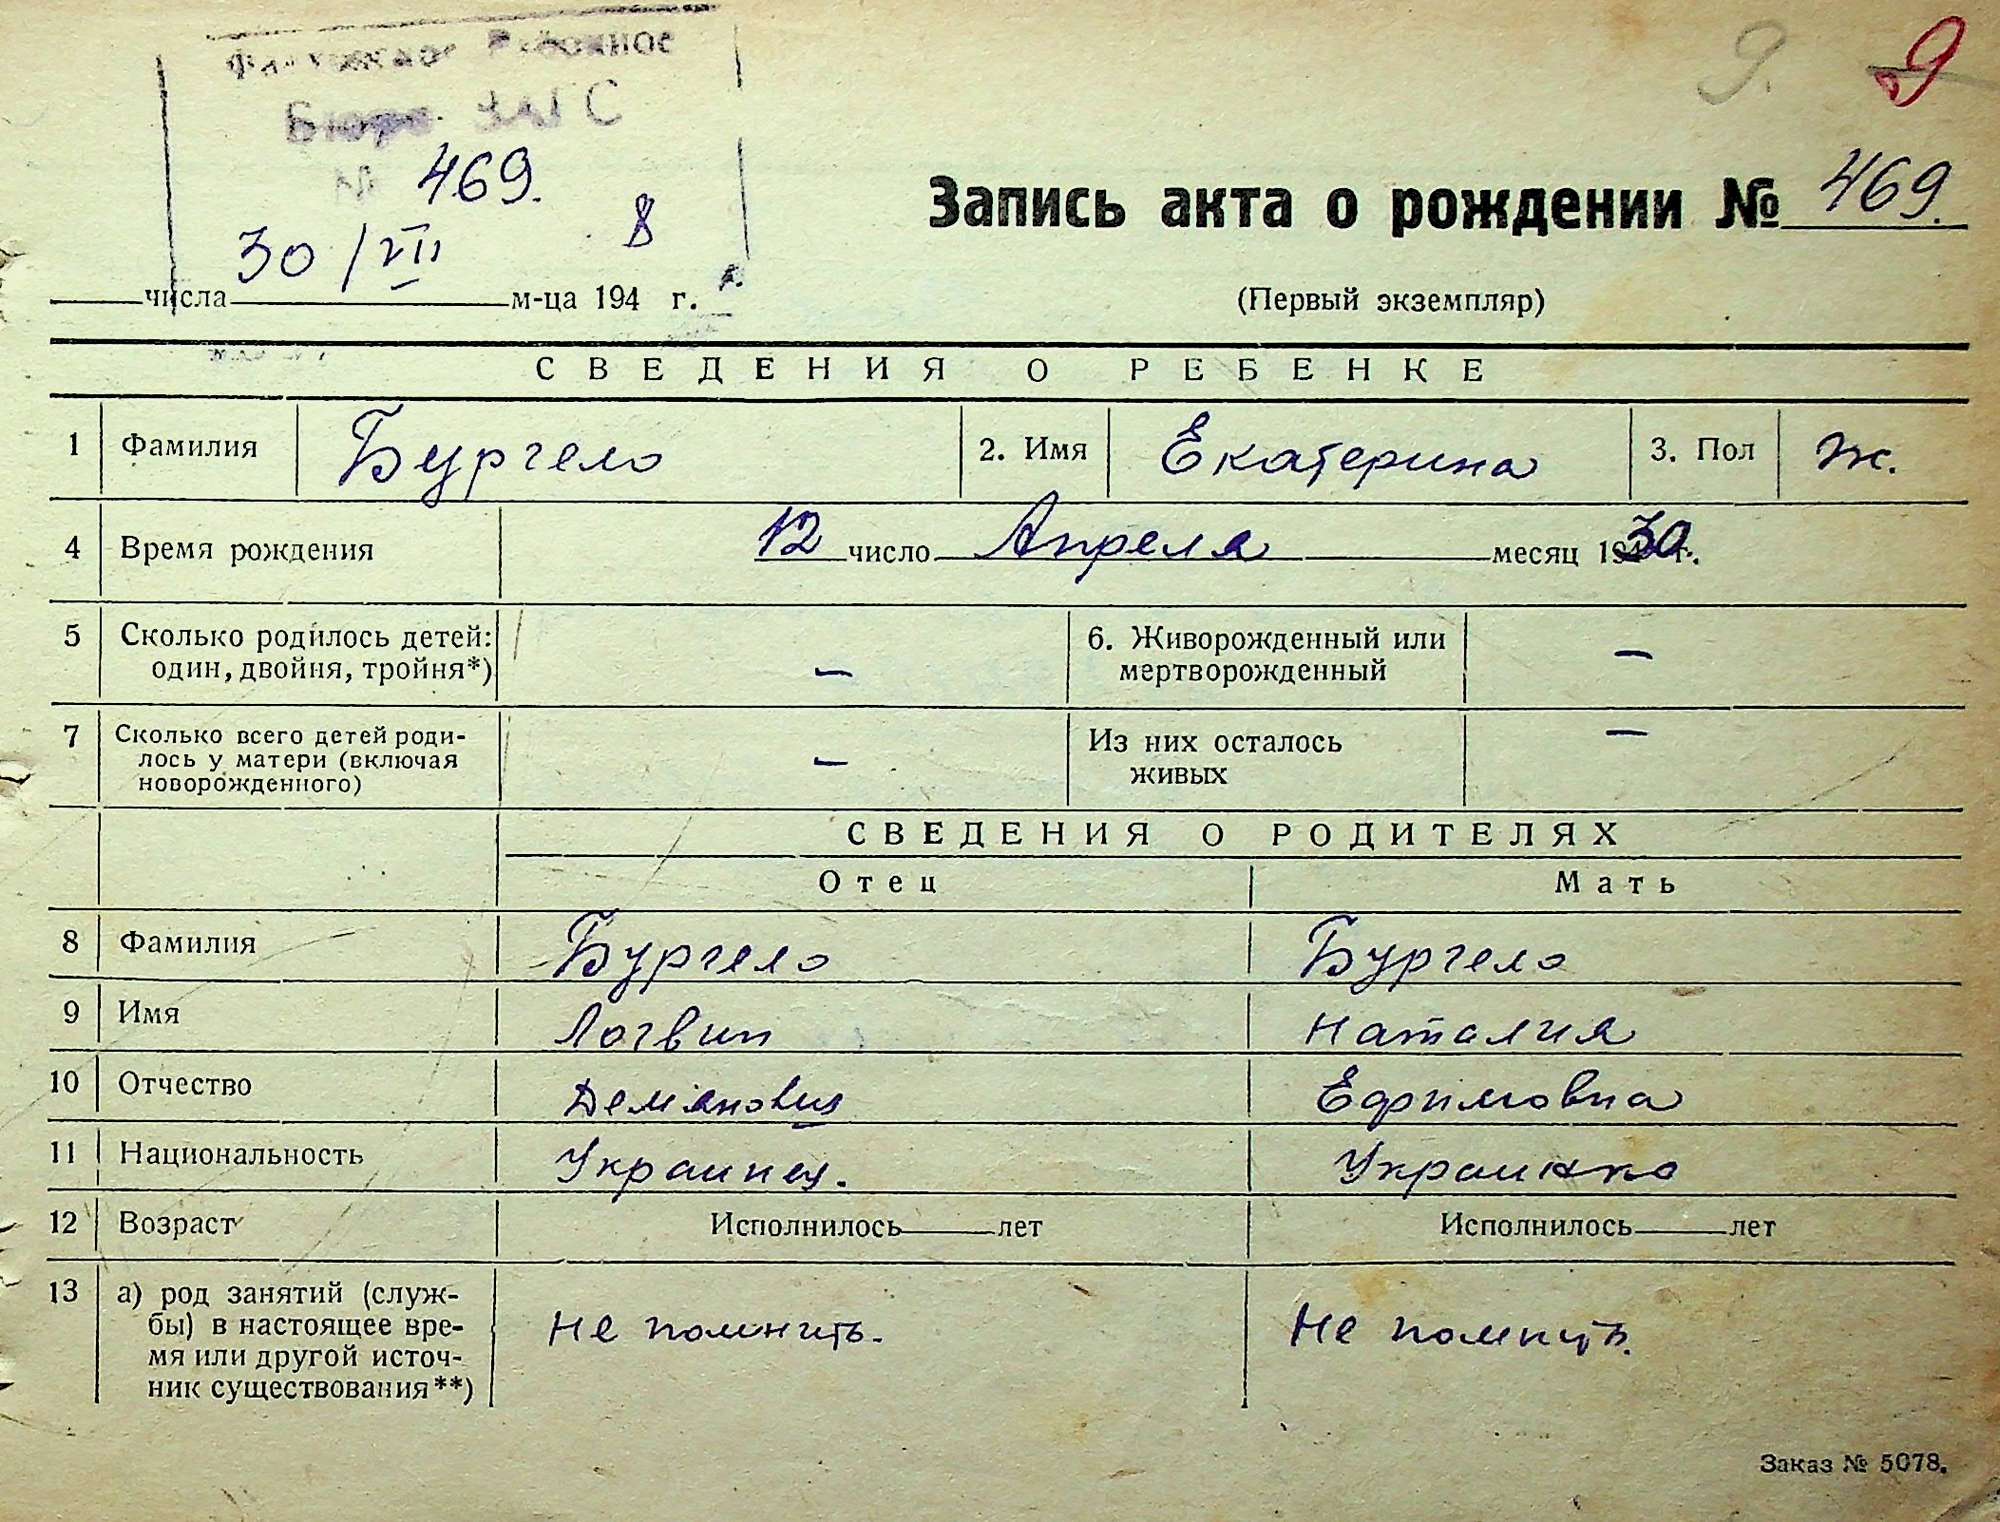 Бюро ЗАГС
№ 469.
30/VII 8
числа м-ца 194 г.
9. 9
Запись акта о рождении № 469.
(Первый экземпляр)
СВЕДЕНИЯ О РЕБЕНКЕ
1 Фамилия Бургело 2. Имя Екатерина 3. Пол ж.
4 Время рождения 12 число Апреля месяц 1930 г.
5 Сколько родилось детей: 6. Живорожденный или
один, двойня, тройня*) — мертворожденный —
7 Сколько всего детей роди- Из них осталось —
лось у матери (включая — живых
новорожденного)
СВЕДЕНИЯ О РОДИТЕЛЯХ
Отец Мать
8 Фамилия Бургело Бургело
9 Имя Логвин Наталия
10 Отчество Демянович Ефимовна
11 Национальность Украинец. Украинка
12 Возраст Исполнилось лет Исполнилось лет
13 а) род занятий (служ-
бы) в настоящее вре- не помнить. Не помнить.
мя или другой источ-
ник существования**)
Заказ № 5078.